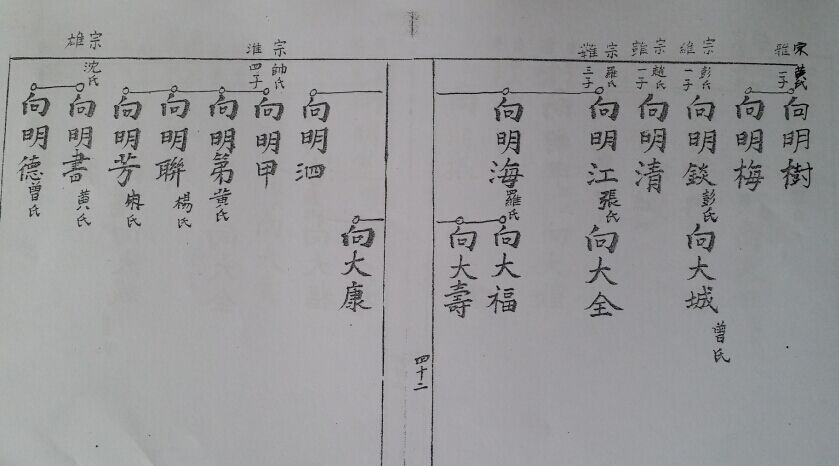 宗雅
黄氏
二子
向明樹
向明梅
宗維
彭氏
一子
向明錟彭氏
向大城
曾氏
宗
趙氏
一子
向明清
宗
羅氏
三子
向明江張氏
向大全
向明海羅氏
向大福
向大壽
四十二
向明泗
向大康
宗淮
帥氏
四子
向明甲
向明第黄氏
向明聯楊氏
向明芳
氏
宗雄
沈氏
向明書黄氏
向明德曾氏